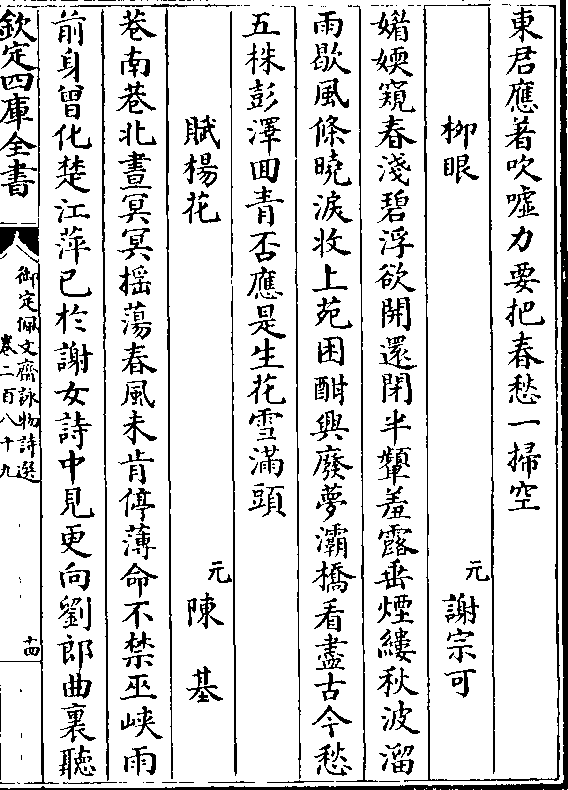 東君應著吹噓力要把春愁一掃空
柳眼
元
謝宗可
媚嫵窺春淺碧浮欲開還閉半顰羞露垂煙縷秋波溜
雨歇風條曉淚收上苑困酣興廢夢灞橋看盡古今愁
五株彭澤回青否應是生花雪滿頭
賦楊花
元
陳基
巷南巷北晝冥冥揺蕩春風未肯停薄命不禁巫峽雨
前身曾化楚江萍已於謝女詩中見更向劉郎曲裏聽
欽定四庫全書
御定佩文齋詠物詩選
卷二百八十九
十四